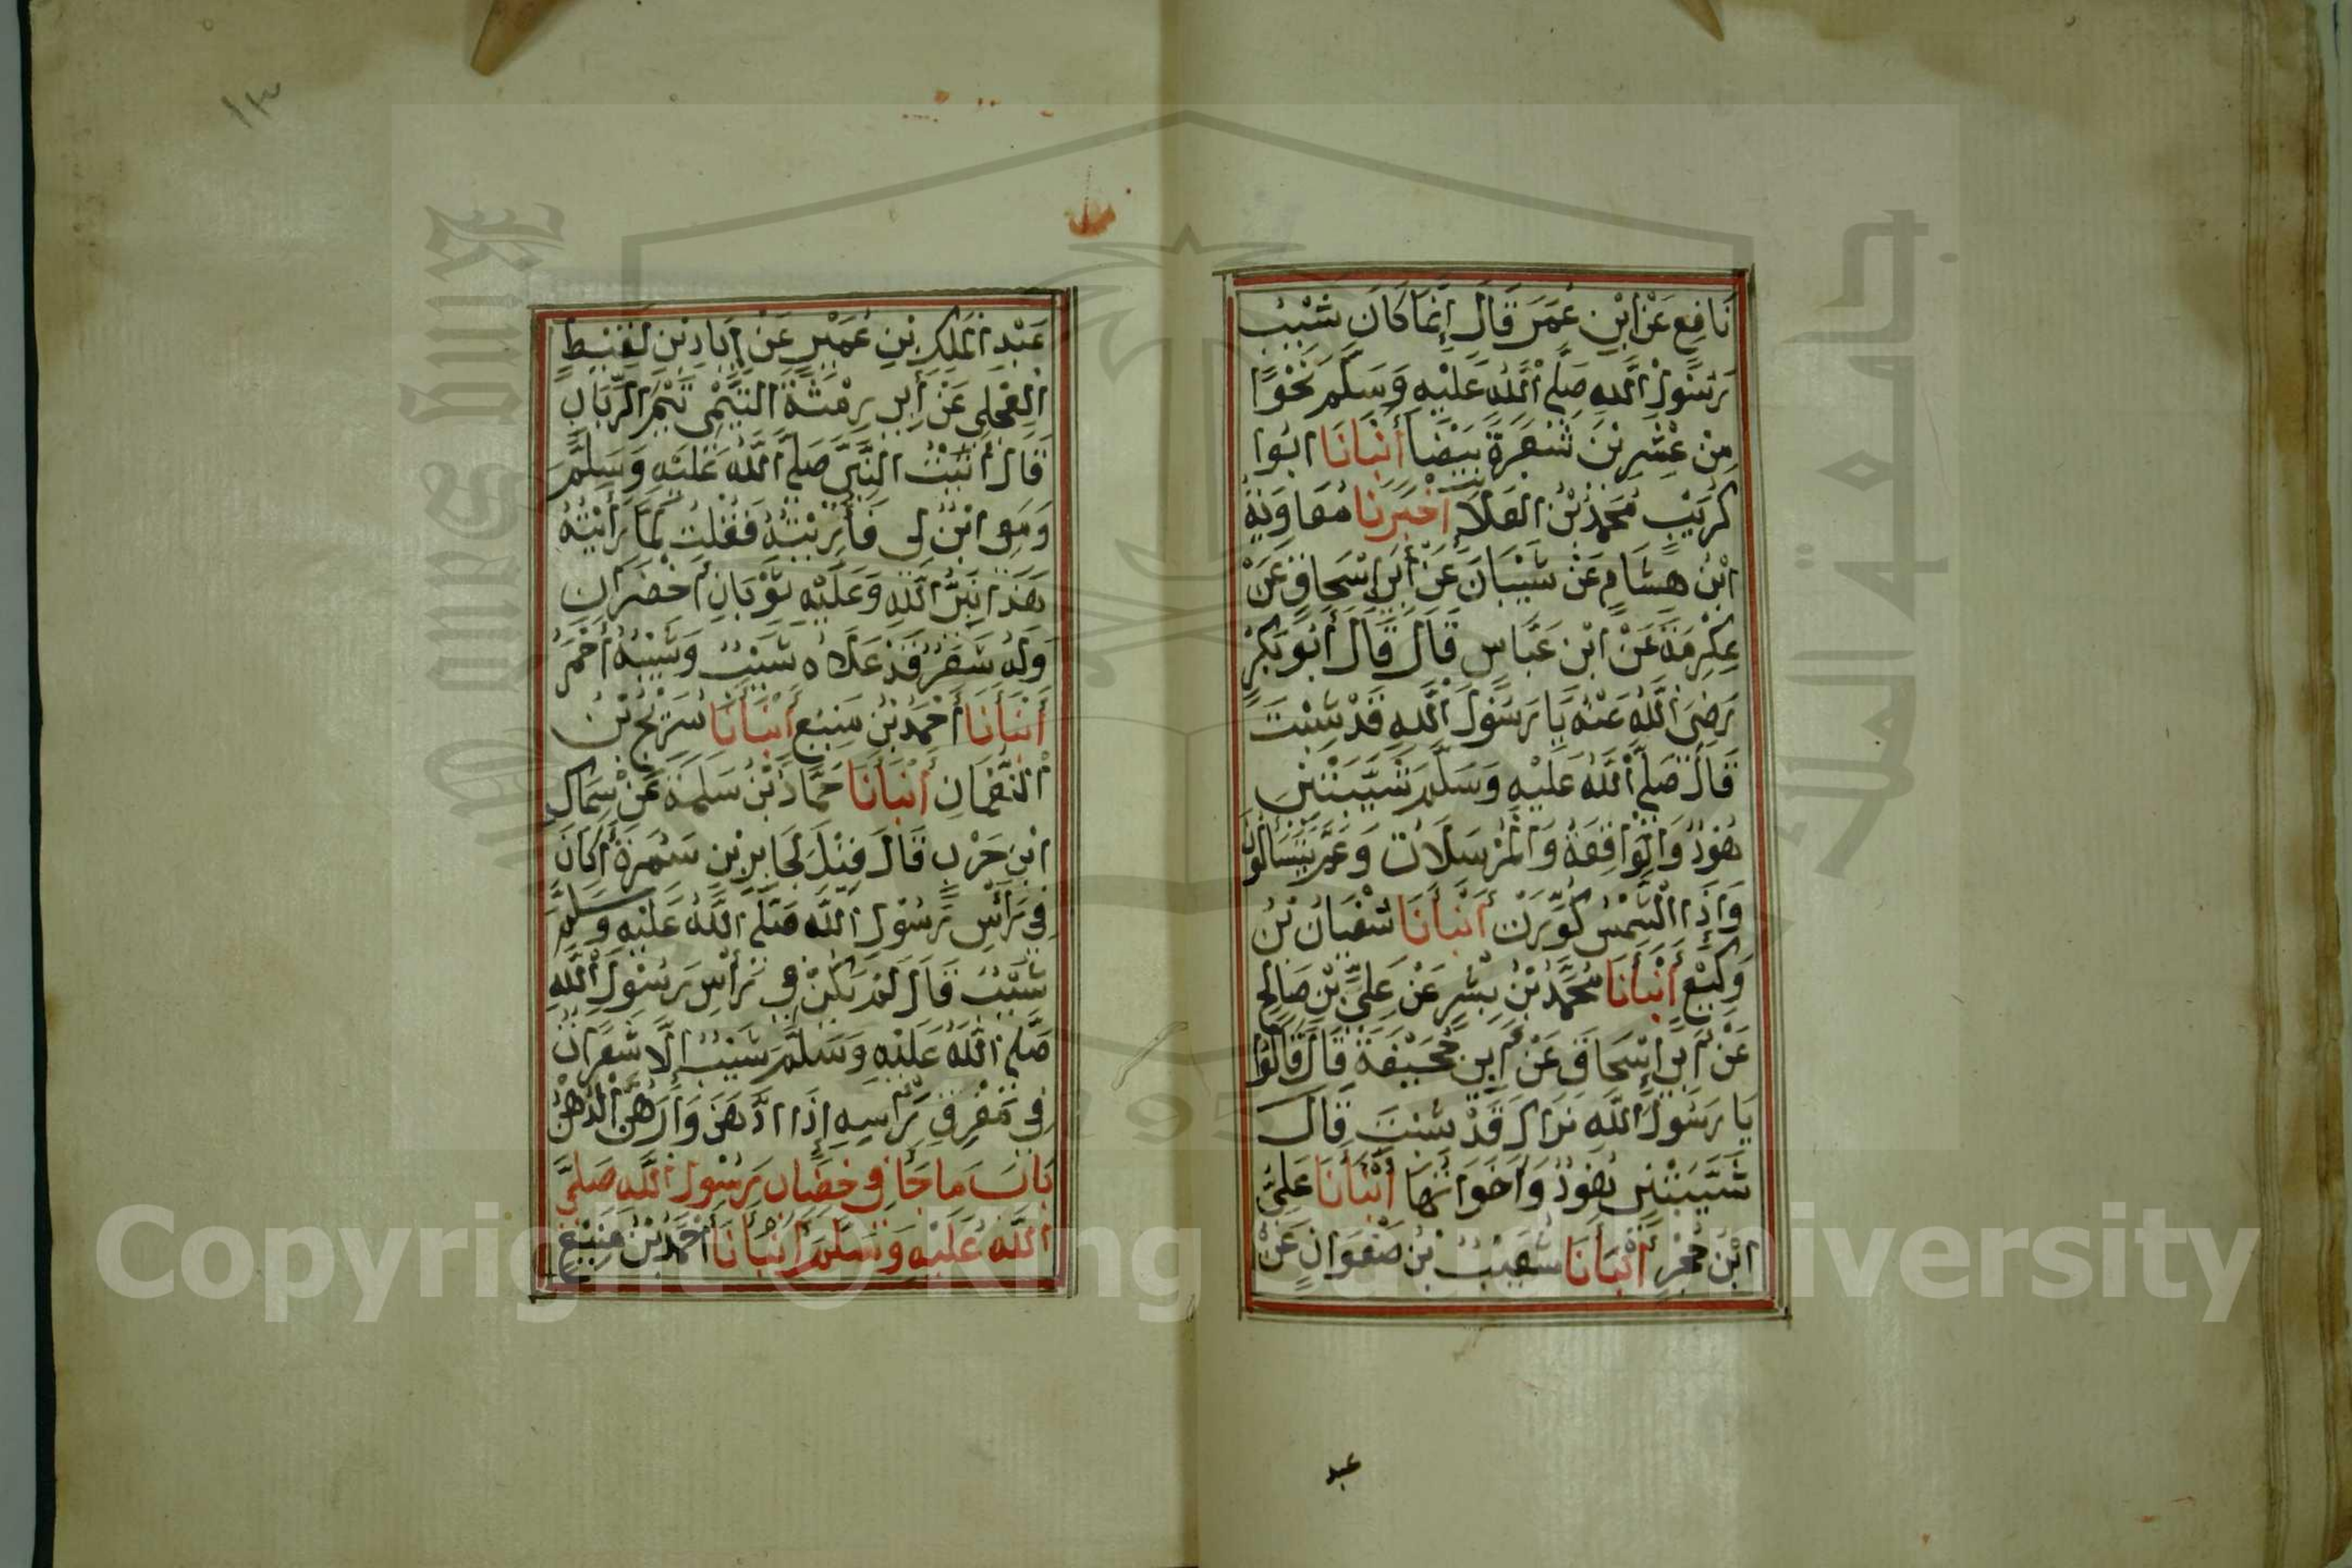 نَافِعٍ عَنْ ابْنِ عُمَرَ قَالَ إِنَّمَا كَانَ شَيْبُ
رَسُولِ اللَّهِ صَلَّى اللَّهُ عَلَيْهِ وَسَلَّمَ نَحْوًا
مِنْ عِشْرِينَ شَعَرَةً بَيْضَا أَنْبَأَنَا ابُوا
كُرَيْبٍ مُحَمَّدُ بْنُ العَلَاءِ أَخْبَرَنَا مُعَاوِيَةُ
ابْنُ هِشَامٍ عَنْ شَيْبَانَ عَنْ أَبِي إِسْحَاقَ عَنْ
عِكْرِمَةَ عَنْ ابْنِ عَبَّاسٍ قَالَ قَالَ أَبُو بَكْرٍ
رَضِيَ اللَّهُ عَنْهُ يَا رَسُولَ اللَّهِ قَدْ شِبْتَ
قَالَ صَلَّى اللَّهُ عَلَيْهِ وَسَلَّمَ شَيَّبَتْنِي
هُودُ وَالْوَاقِعَةُ وَالْمُرْسَلَاتُ وَعَمَّ يَتَسَاءَلُونَ
وَإِذَا الشَّمْسُ كُوِّرَتْ أَنْبَأَنَا سُفْيَانُ بْنُ
وَكِيْعٍ أَنْبَأَنَا مُحَمَّدُ بْنُ بِشْرٍ عَنْ عَلِيِّ بْنِ صَالِحٍ
عَنْ أَبِي إِسْحَاقَ عَنْ أَبِي جُحَيْفَةَ قَالَ قَالُوا
يَا رَسُولَ اللَّهِ نَرَاكَ قَدْ شِبْتَ قَالَ
شَيَّبَتْنِي هُودُ وَأَخَوَاتُهَا أَنْبَأَنَا عَلِيُّ
ابْنُ حُجْرٍ أَنْبَأَنَا شُعَيْبُ بْنُ صَفْوَانَ عَنْ
عبد
١٣
عَبْدِ الْمَلِكِ بْنِ عُمَيْرٍ عَنْ إِيَادِ بْنِ لَقِيْطٍ
العِجْلِي عَنْ أَبِي رِمْثَةَ التَّيْمِي تَيْمِ الرَّبَابِ
قَالَ أَتَيْتُ النَّبِيَّ صَلَّى اللَّهُ عَلَيْهِ وَسَلَّمَ
وَمَعِي ابْنٌ لِي فَأُرِيْتُهُ فَقُلْتُ لَمَّا رَأَيْتُهُ
هَذَا نَبِيُّ اللَّهِ وَعَلَيْهِ ثَوْبَانِ أَخْضَرَانِ
وَلَهُ شَعَرٌ قَدْ عَلَاهُ شَيْبٌ وَشَيْبُهُ أَحْمَرُ
أَنْبَأَنَا أَحْمَدُ بْنُ مَنِيعٍ أَنْبَأَنَا سُرَيْجُ بْنُ
النُّعْمَانِ أَنْبَأَنَا حَمَّادُ بْنُ سَلَمَةَ عَنْ سِمَاكِ
ابْنِ حَرْبٍ قَالَ قِيْلَ لِجَابِرِ بْنِ سَمُرَةَ أَكَانَ
فِي رَأْسِ رَسُولِ اللَّهِ صَلَّى اللَّهُ عَلَيْهِ وَسَلَّمَ
شَيْبٌ قَالَ لَمْ يَكُنْ فِي رَأْسِ رَسُولِ اللَّهِ
صَلَّى اللَّهُ عَلَيْهِ وَسَلَّمَ شَيْبٌ إِلَّا شَعَرَاتٌ
فِي مَفْرِقِ رَأْسِهِ إِذَا ادَّهَنَ وَارَاهُنَّ الدُّهْنُ
بَابُ مَا جَا فِي خِضَابِ رَسُولِ اللَّهِ صَلَّى
اللَّهُ عَلَيْهِ وَسَلَّمَ أَنْبَأَنَا أَحْمَدُ بْنُ مَنِيْعٍ
Copyright © King Saud University